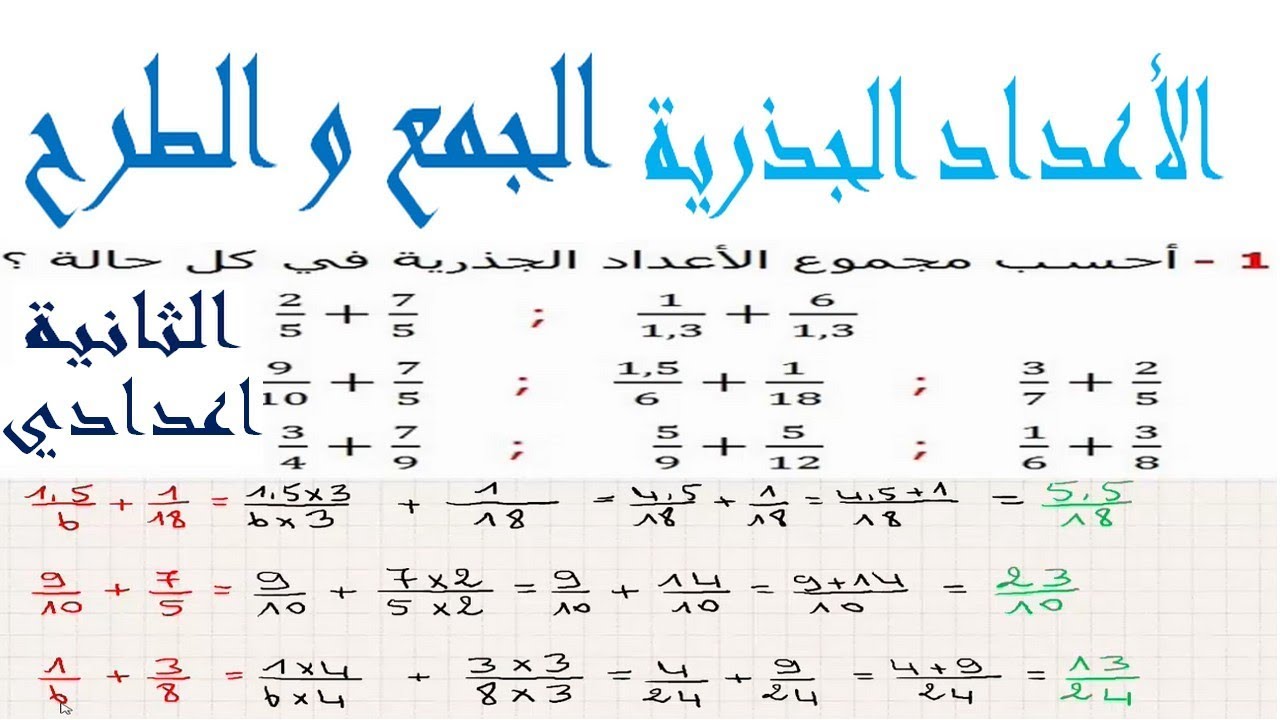 الأعداد الجذرية الجمع و الطرح
1 - أحسب مجموع الأعداد الجذرية في كل حالة ؟
الثانية
اعدادي
2/5 + 7/5 ; 1/1,3 + 6/1,3
9/10 + 7/5 ; 1,5/6 + 1/18 ; 3/7 + 2/5
3/4 + 7/9 ; 5/9 + 5/12 ; 1/6 + 3/8
1.5/6 + 1/18 = 1.5×3/6×3 + 1/18 = 4.5/18 + 1/18 = 4.5+1/18 = 5.5/18
9/10 + 7/5 = 9/10 + 7×2/5×2 = 9/10 + 14/10 = 9+14/10 = 23/10
1/6 + 3/8 = 1×4/6×4 + 3×3/8×3 = 4/24 + 9/24 = 4+9/24 = 13/24